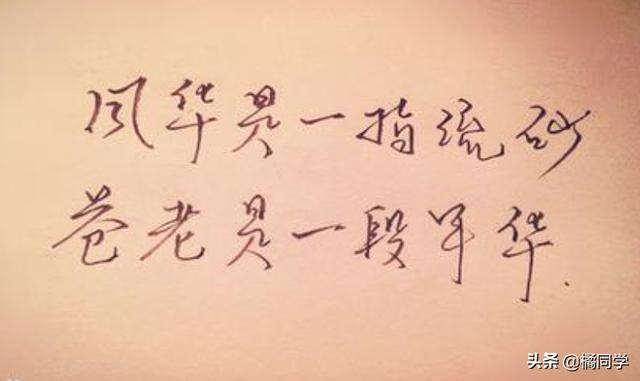 风华是一指流砂
苍老是一段年华.
头条 @橘同学